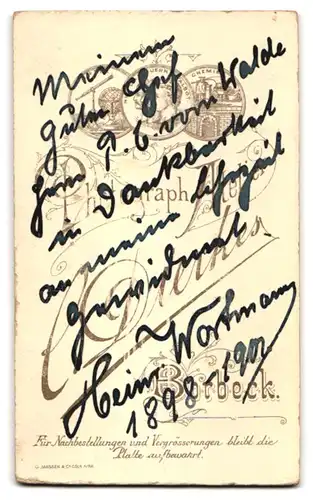 Meinem
guten Chef
Herrn P. G. vom Walde
in Dankbarkeit
an meine Lehrzeit
gewidmet
Heinr. Wortmann
1898-1901
Photograph. Atelier
Borbeck.
Für Nachbestellungen und Vergrösserungen bleibt die
Platte aufbewahrt.